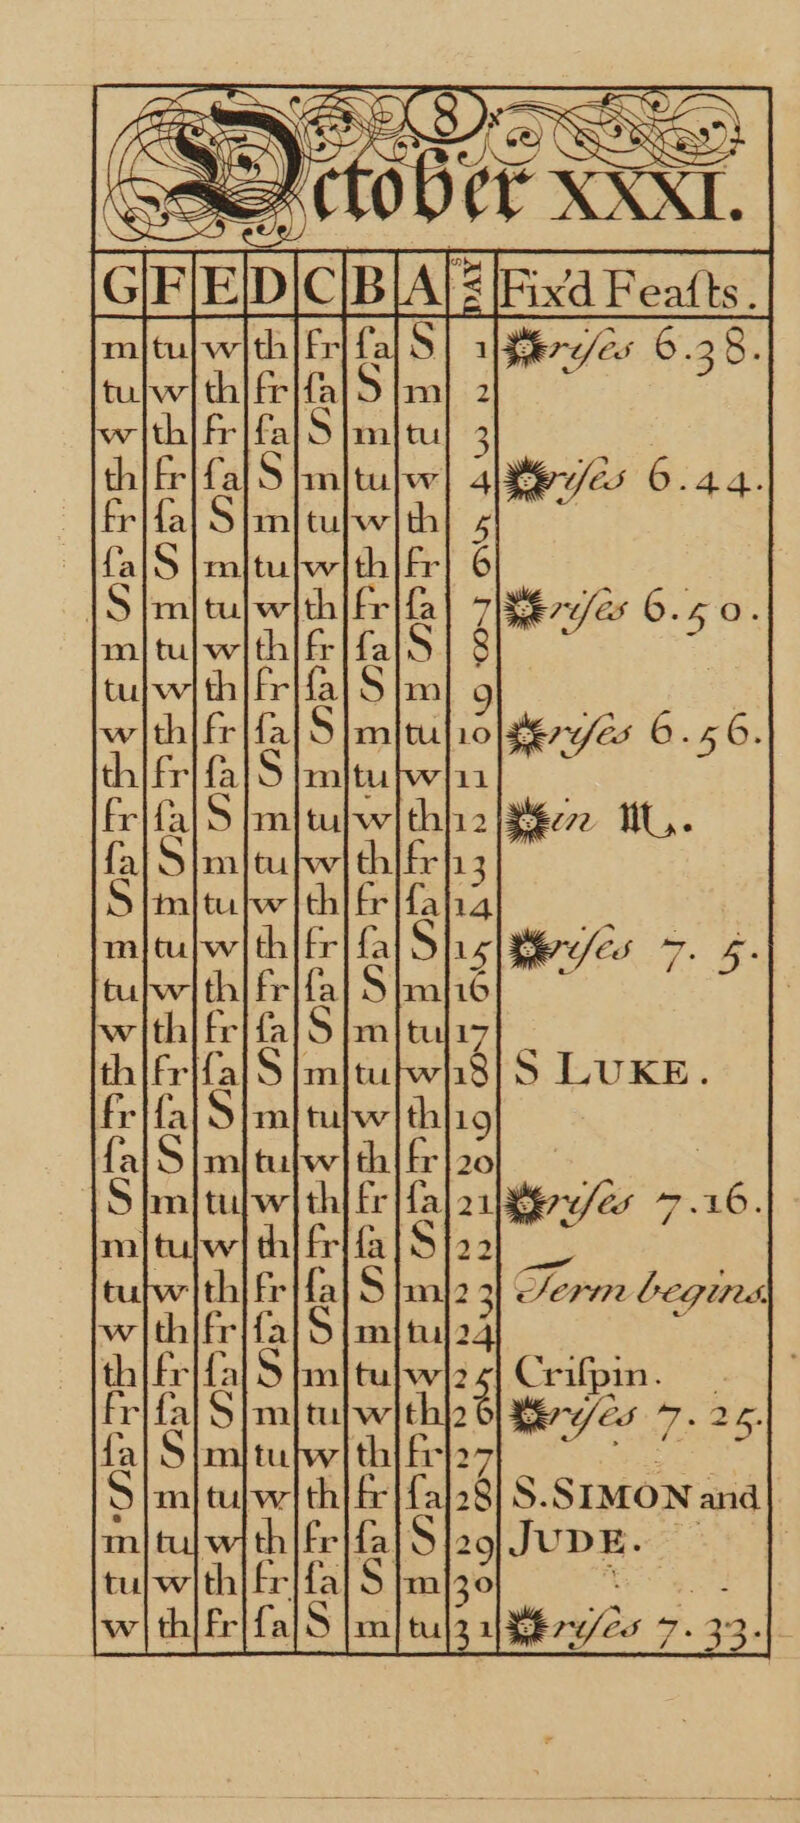 8
October XXXI.
G F E D C B A DAYS Fix'd Feaſts.
m tu w th fr ſa S 1 riſes 6.38.
tu w th fr ſa S m 2
w th fr ſa S m tu 3
th fr ſa S m tu w 4 riſes 6.44.
fr ſa S m tu w th 5
ſa S m tu w th fr 6
S m tu w th fr ſa 7 riſes 6.50.
m tu w th fr ſa S 8
tu w th fr ſa S m 9
w th fr ſa S m tu 10 riſes 6.56.
th fr ſa S m tu w 11
fr ſa S m tu w th 12 in ♏.
ſa S m tu w th fr 13
S m tu w th fr ſa 14
m tu w th fr ſa S 15 riſes 7. 5.
tu w th fr ſa S m 16
w th fr ſa S m tu 17
th fr ſa S m tu w 18 S LUKE.
fr ſa S m tu w th 19
ſa S m tu w th fr 20
S m tu w th fr ſa 21 riſes 7.16.
m tu w th fr ſa S 22
tu w th fr ſa S m 23 Term begins.
w th fr ſa S m tu 24
th fr ſa S m tu w 25 Criſpin.
fr ſa S m tu w th 26 riſes 7.25.
ſa S m tu w th fr 27
S m tu w th fr ſa 28 S.SIMON and
m tu w th fr ſa S 29 JUDE.
tu w th fr ſa S m 30
w th fr ſa S m tu 31 riſes 7.33.